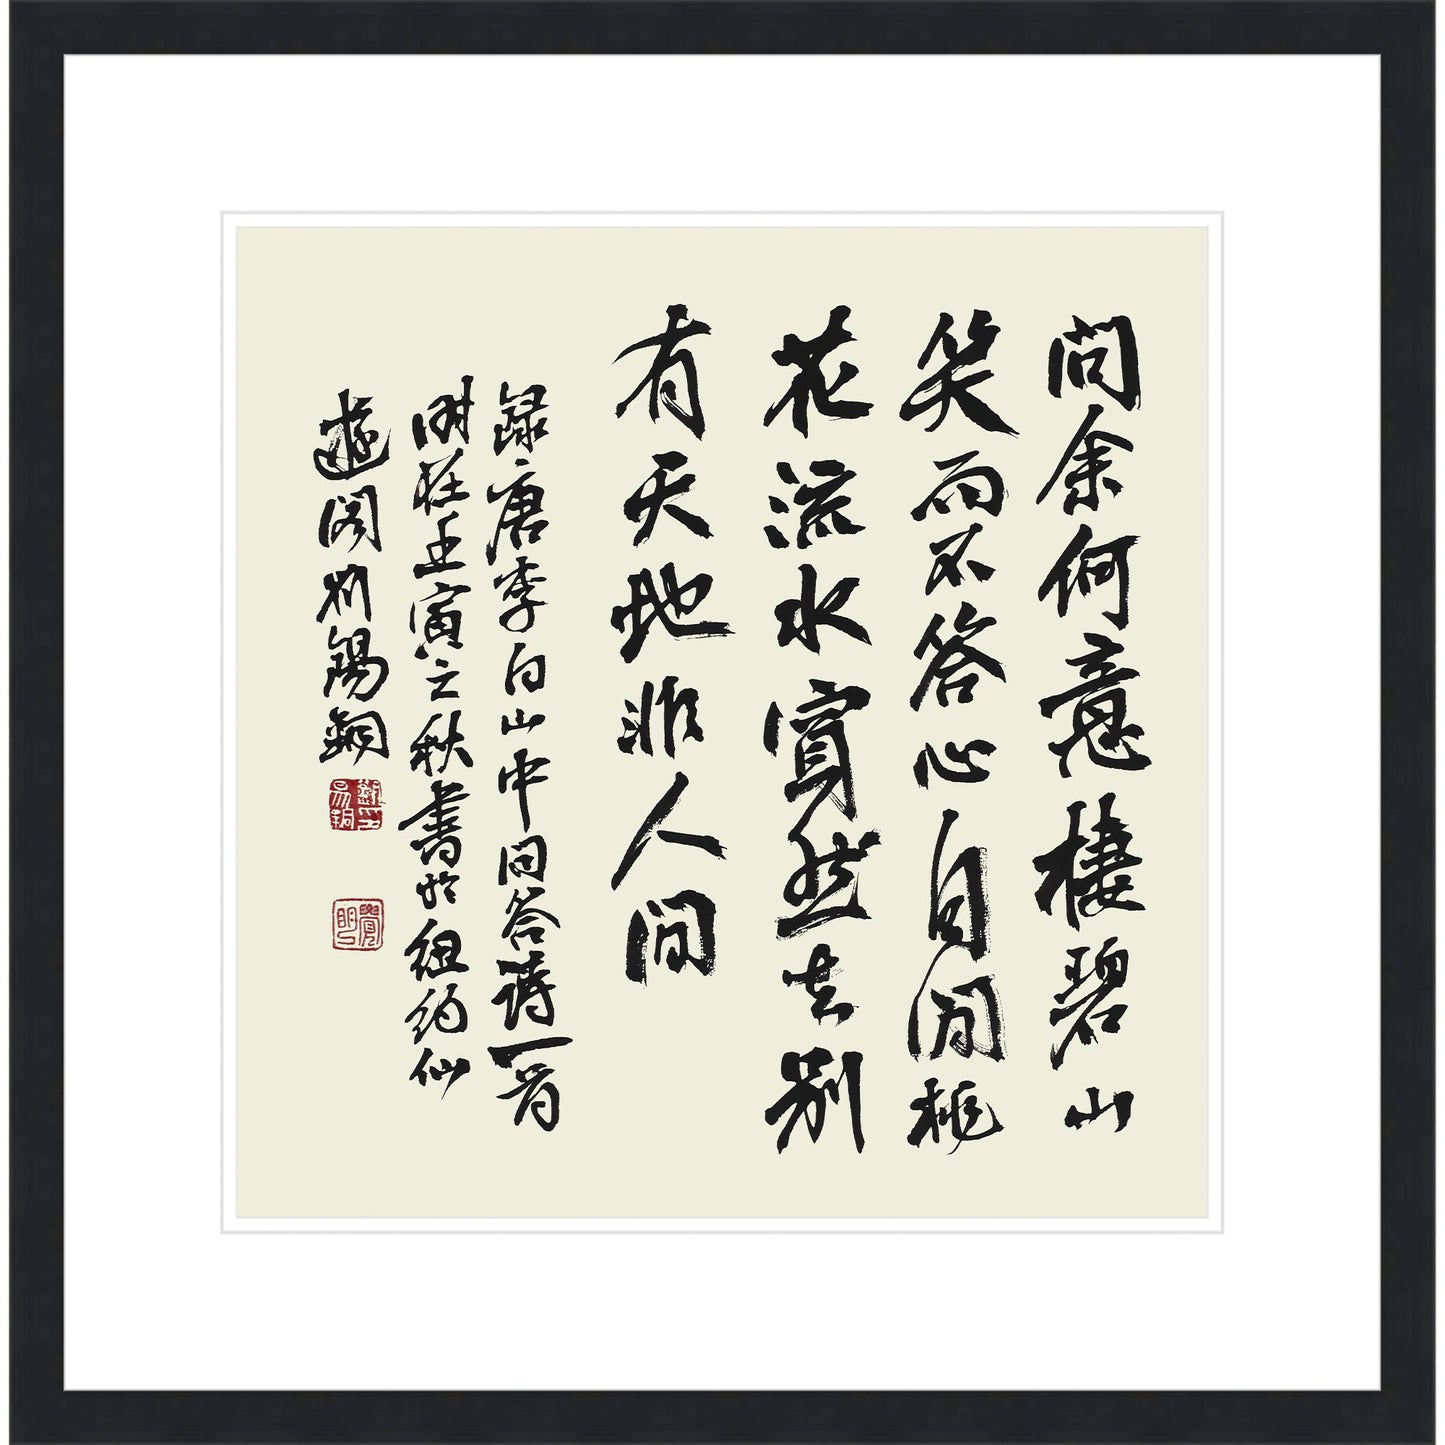 問余何意棲碧山
笑而不答心自閒桃
花流水窅然去別
有天地非人間
録唐李白山中問答詩一首
時在壬寅之秋書於紐約仙
遊閣刘錫銅